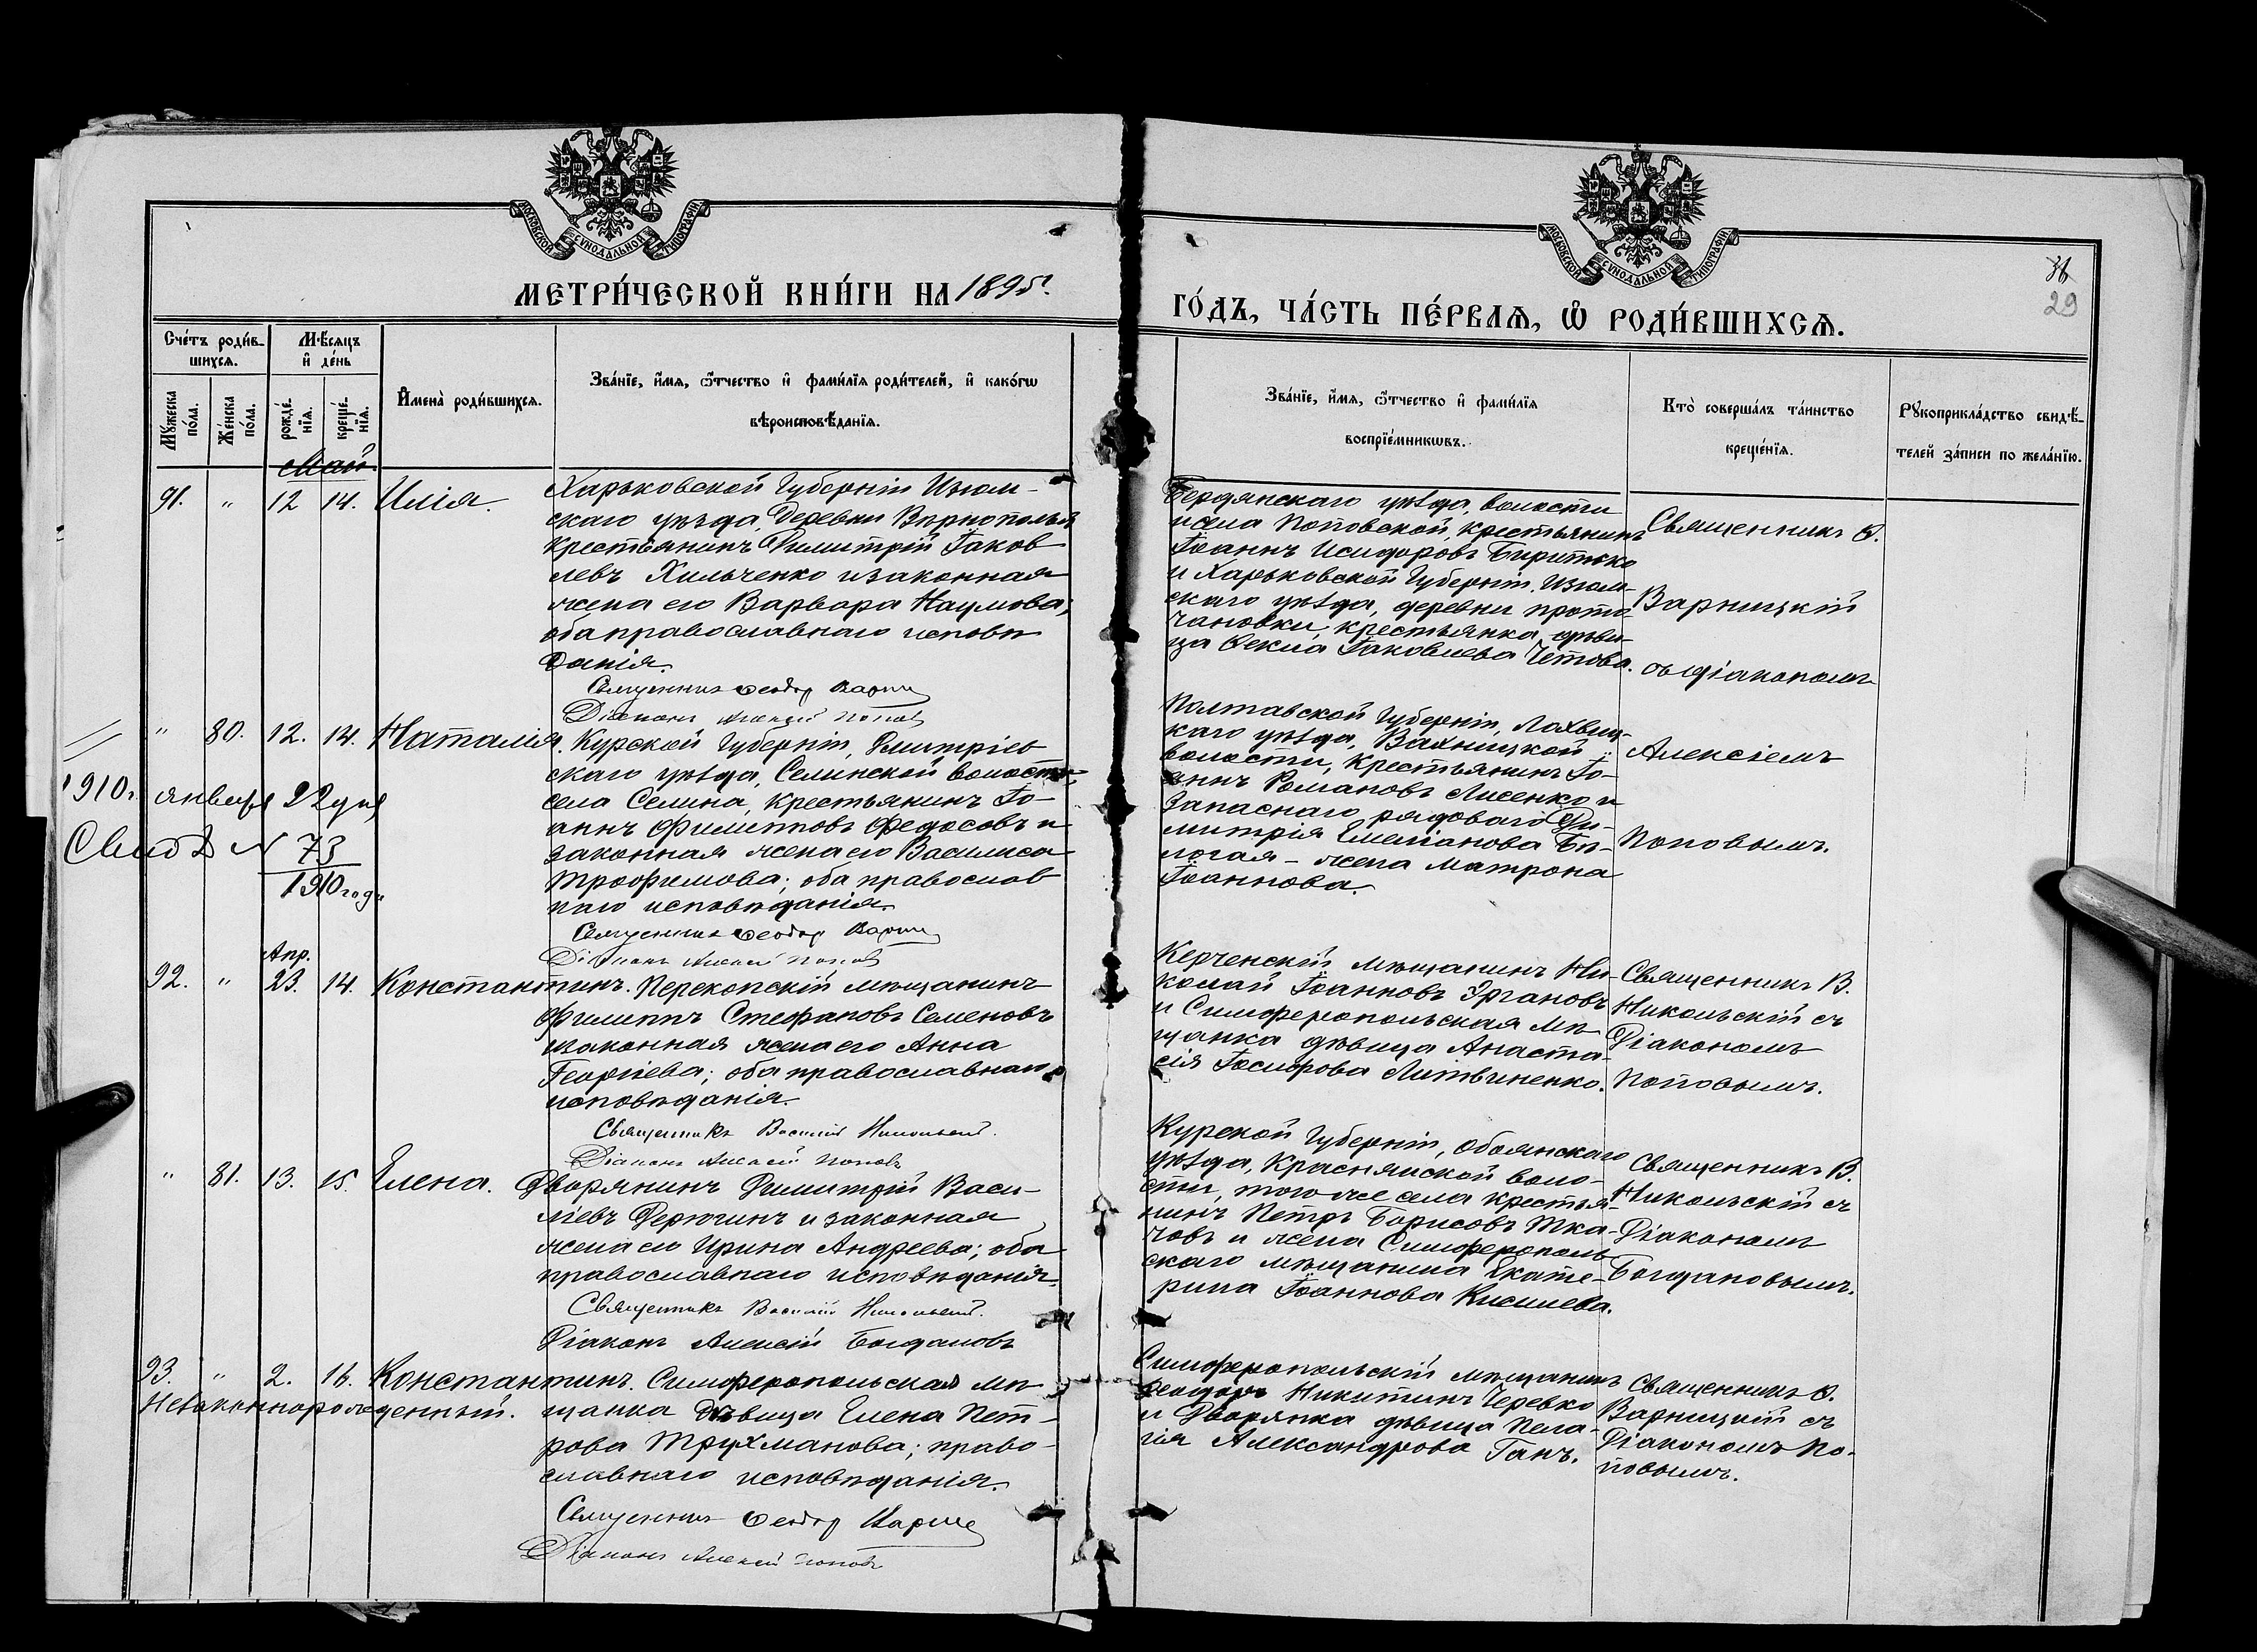 МОСКОВСКОЙ СУНОДАЛЬНОЙ ТИПОГРАФІИ
МОСКОВСКОЙ СУНОДАЛЬНОЙ ТИПОГРАФІИ
МЕТРИ́ЧЕСКОЙ КНИ́ГИ НА 1895 г.
ГО́ДЪ, ЧА́СТЬ ПЕ́РВАѦ, Ѡ РОДИ́ВШИХСѦ.
31
29
Сче́тъ роди́в-
шихсѧ.
Мѣ́сѧцъ
и҆ де́нь
Мꙋ́жеска по́ла.
Же́нска по́ла.
рожде́-нїѧ.
креще́-нїѧ.
И҆мена̀ роди́вшихсѧ.
Зва́нїе, и҆́мѧ, ѻ҆́тчество и҆ фами́лїѧ роди́телей, и҆ како́гѡ
вѣроисповѣ́данїѧ.
Зва́нїе, и҆́мѧ, ѻ҆́тчество и҆ фами́лїѧ
воспрїе́мникѡвъ.
Кто̀ соверша́лъ та́инство
креще́нїѧ.
Рꙋкоприкла́дство свидѣ́-
телей за́писи по жела́нїю.
Май
91. " 12 14. Илія.
Харьковской Губерніи Изюм-
скаго уѣзда, Деревни Вѣрнополья
крестьянинъ Димитрій Іаков
левъ Хильченко и законная
жена его Варвара Наумова;
оба православнаго исповѣ
данія.
Священникъ Ѳеодор Варниц
Діаконъ Алексій Поповъ
Бердянскаго уѣзда, волости
и села Поповской, крестьянинъ
Іоаннъ Исидоровъ Биритько
и Харьковской Губерніи, Изюм-
скаго уѣзда, деревни прото-
чановки, крестьянка, дѣви-
ца Ѳекла Іаковлева Четова.
Священникъ Ѳ.
Варницкій
съ Діакономъ
Алексіемъ
Поповымъ.
" 80. 12. 14. Наталія.
1910 г. января 22 дня
Свид № 73
1910 года
Курской Губерніи, Дмитріев
скаго уѣзда, Селинской волости
села Селина, крестьянинъ Іо-
аннъ Филипповъ Федосовъ и
законная жена его Василиса
Трофимова; оба православ
наго исповѣданія.
Священникъ Ѳеодор Варниц
Діаконъ Алексій Поповъ
Полтавской Губерніи, Лохвиц-
каго уѣзда, Вахницкой
волости, крестьянинъ Іо-
аннъ Романовъ Лисенко и
Запаснаго рядоваго Ди-
митрія Емеліанова Бѣ-
логая - жена Матрона
Іоаннова.
92. " Апр. 23. 14. Константинъ.
Перекопскій мѣщанинъ
Филиппъ Стефановъ Семеновъ
и законная жена его Анна
Георгіева; оба православнаго
исповѣданія.
Священникъ Василій Никольскій.
Діаконъ Алексій Поповъ
Керченскій мѣщанинъ Ни-
колай Іоанновъ Эргановъ
и Симферопольская мѣ-
щанка дѣвица Анаста-
сія Іосифова Литвиненко.
Священникъ В.
Никольскій съ
Діакономъ
Поповымъ.
" 81. 13. 15. Елена.
Дворянинъ Димитрій Васи-
ліевъ Дерюгинъ и законная
жена его Ирина Андреева; оба
православнаго исповѣданія.
Священникъ Василій Никольскій.
Діаконъ Алексій Богдановъ
Курской Губерніи, Обоянскаго
уѣзда, Краснянской воло-
сти, того же села крестья-
нинъ Петръ Борисовъ Тка-
човъ и жена Симферополь-
скаго мѣщанина Екате-
рина Іоаннова Киселева.
Священникъ В.
Никольскій съ
Діакономъ
Богдановымъ.
93. " 2. 16. Константинъ.
Незаконнорожденный.
Симферопольская мѣ
щанка дѣвица Елена Пет-
рова Трухманова; право-
славнаго исповѣданія.
Священникъ Ѳеодор Варниц
Діаконъ Алексій Поповъ
Симферопольскій мѣщанинъ
Ѳеодоръ Никитинъ Черевко
и Дворянка дѣвица Пела-
гія Александрова Ганъ.
Священникъ Ѳ.
Варницкій съ
Діакономъ По-
повымъ.